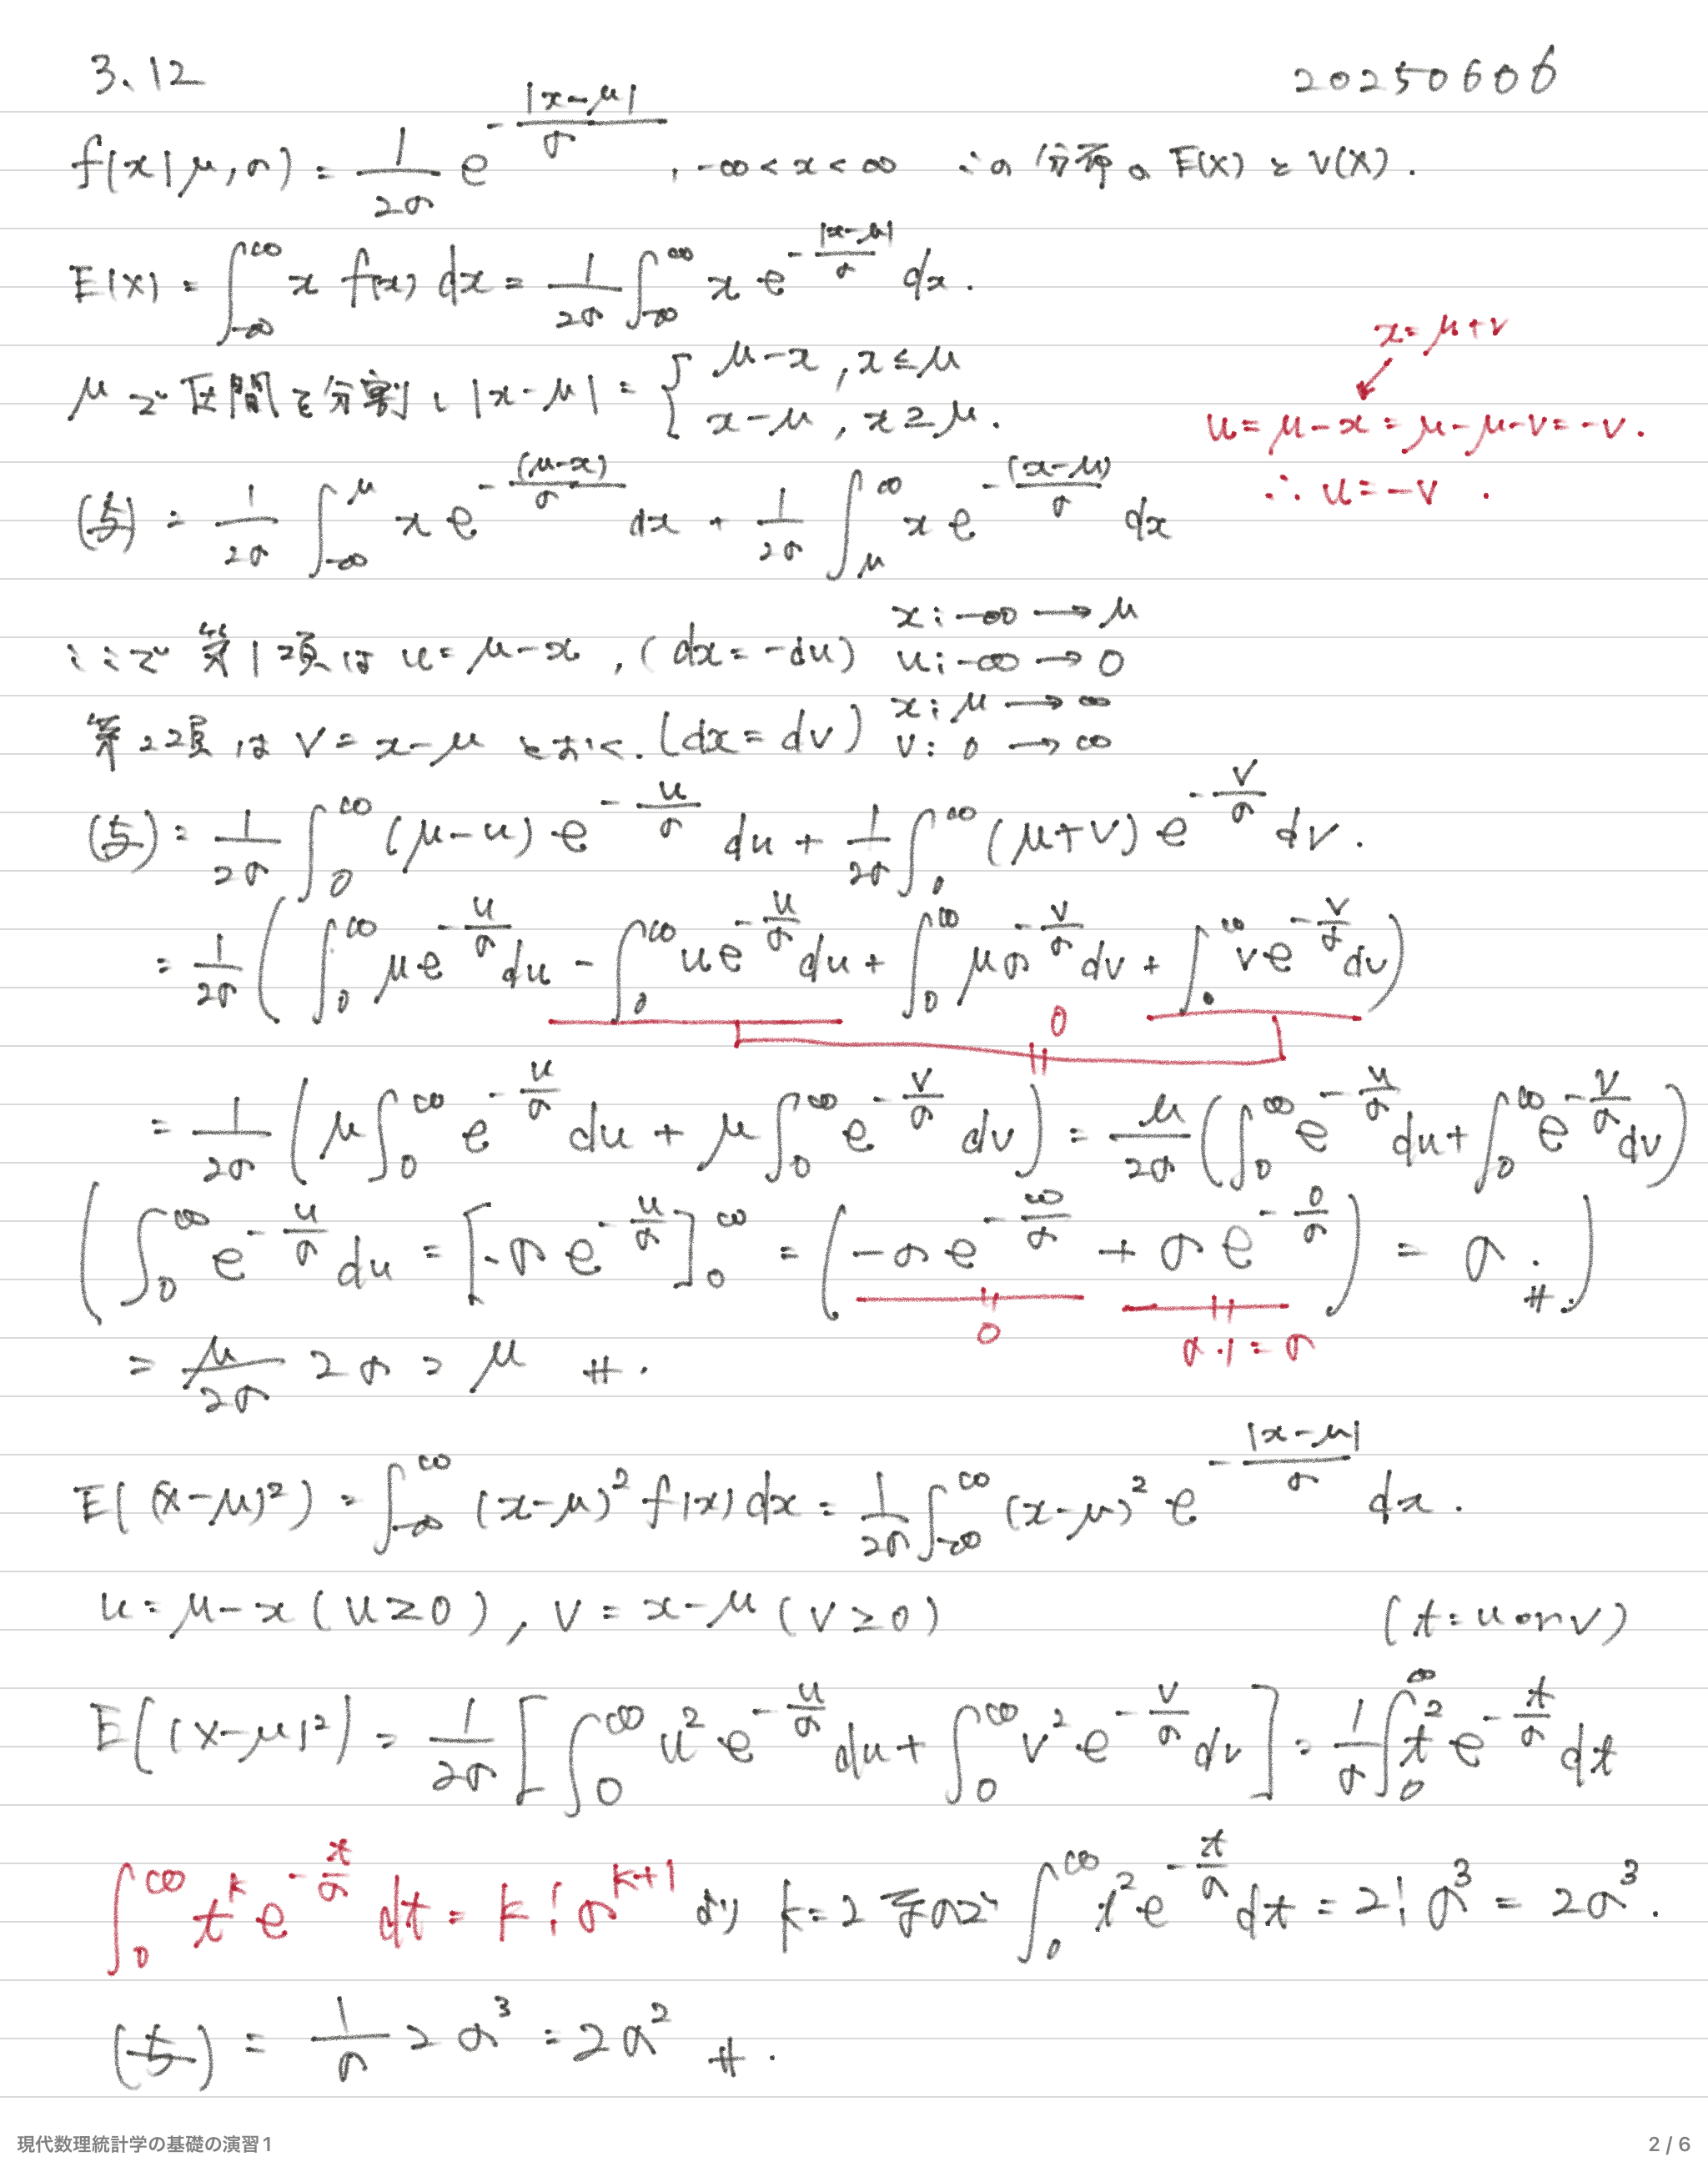 3.12
20250606
f(x|μ,σ) = 1/2σ e^{-|x-μ|/σ} , -∞ < x < ∞ この分布の E(X) と V(X).
E(X) = ∫_{-∞}^{∞} x f(x) dx = 1/2σ ∫_{-∞}^{∞} x e^{-|x-μ|/σ} dx.
μで区間を分割し |x-μ| = { μ-x , x≤μ
x-μ , x≥μ.
x=μ+v
u=μ-x=μ-μ-v=-v.
∴ u=-v .
(与) = 1/2σ ∫_{-∞}^{μ} x e^{-(μ-x)/σ} dx + 1/2σ ∫_{μ}^{∞} x e^{-(x-μ)/σ} dx
ここで 第1項は u=μ-x , (dx=-du) x:-∞→μ
u:-∞→0
第2項は v=x-μ とおく. (dx=dv) x:μ→∞
v:0→∞
(与) = 1/2σ ∫_0^∞ (μ-u) e^{-u/σ} du + 1/2σ ∫_0^∞ (μ+v) e^{-v/σ} dv.
= 1/2σ ( ∫_0^∞ μe^{-u/σ} du - ∫_0^∞ ue^{-u/σ} du + ∫_0^∞ μσ^{-v/σ} dv + ∫_0^∞ ve^{-v/σ} dv )
0
= 1/2σ ( μ∫_0^∞ e^{-u/σ} du + μ∫_0^∞ e^{-v/σ} dv ) = μ/2σ ( ∫_0^∞ e^{-u/σ} du + ∫_0^∞ e^{-v/σ} dv )
( ∫_0^∞ e^{-u/σ} du = [-σe^{-u/σ}]_0^∞ = ( -σe^{-∞/σ} + σe^{-0/σ} ) = σ . #. )
0
σ・1=σ
= μ/2σ 2σ = μ #.
E((X-μ)²) = ∫_{-∞}^{∞} (x-μ)² f(x) dx = 1/2σ ∫_{-∞}^{∞} (x-μ)² e^{-|x-μ|/σ} dx .
u=μ-x (u≥0) , v=x-μ (v≥0) (t=u or v)
E((X-μ)²) = 1/2σ [ ∫_0^∞ u² e^{-u/σ} du + ∫_0^∞ v² e^{-v/σ} dv ] = 1/σ ∫_0^∞ t² e^{-t/σ} dt
∫_0^∞ t^k e^{-t/σ} dt = k! σ^{k+1} より k=2 なので ∫_0^∞ t² e^{-t/σ} dt = 2! σ³ = 2σ³ .
(与) = 1/σ 2σ³ = 2σ² #.
現代数理統計学の基礎の演習1
2 / 6